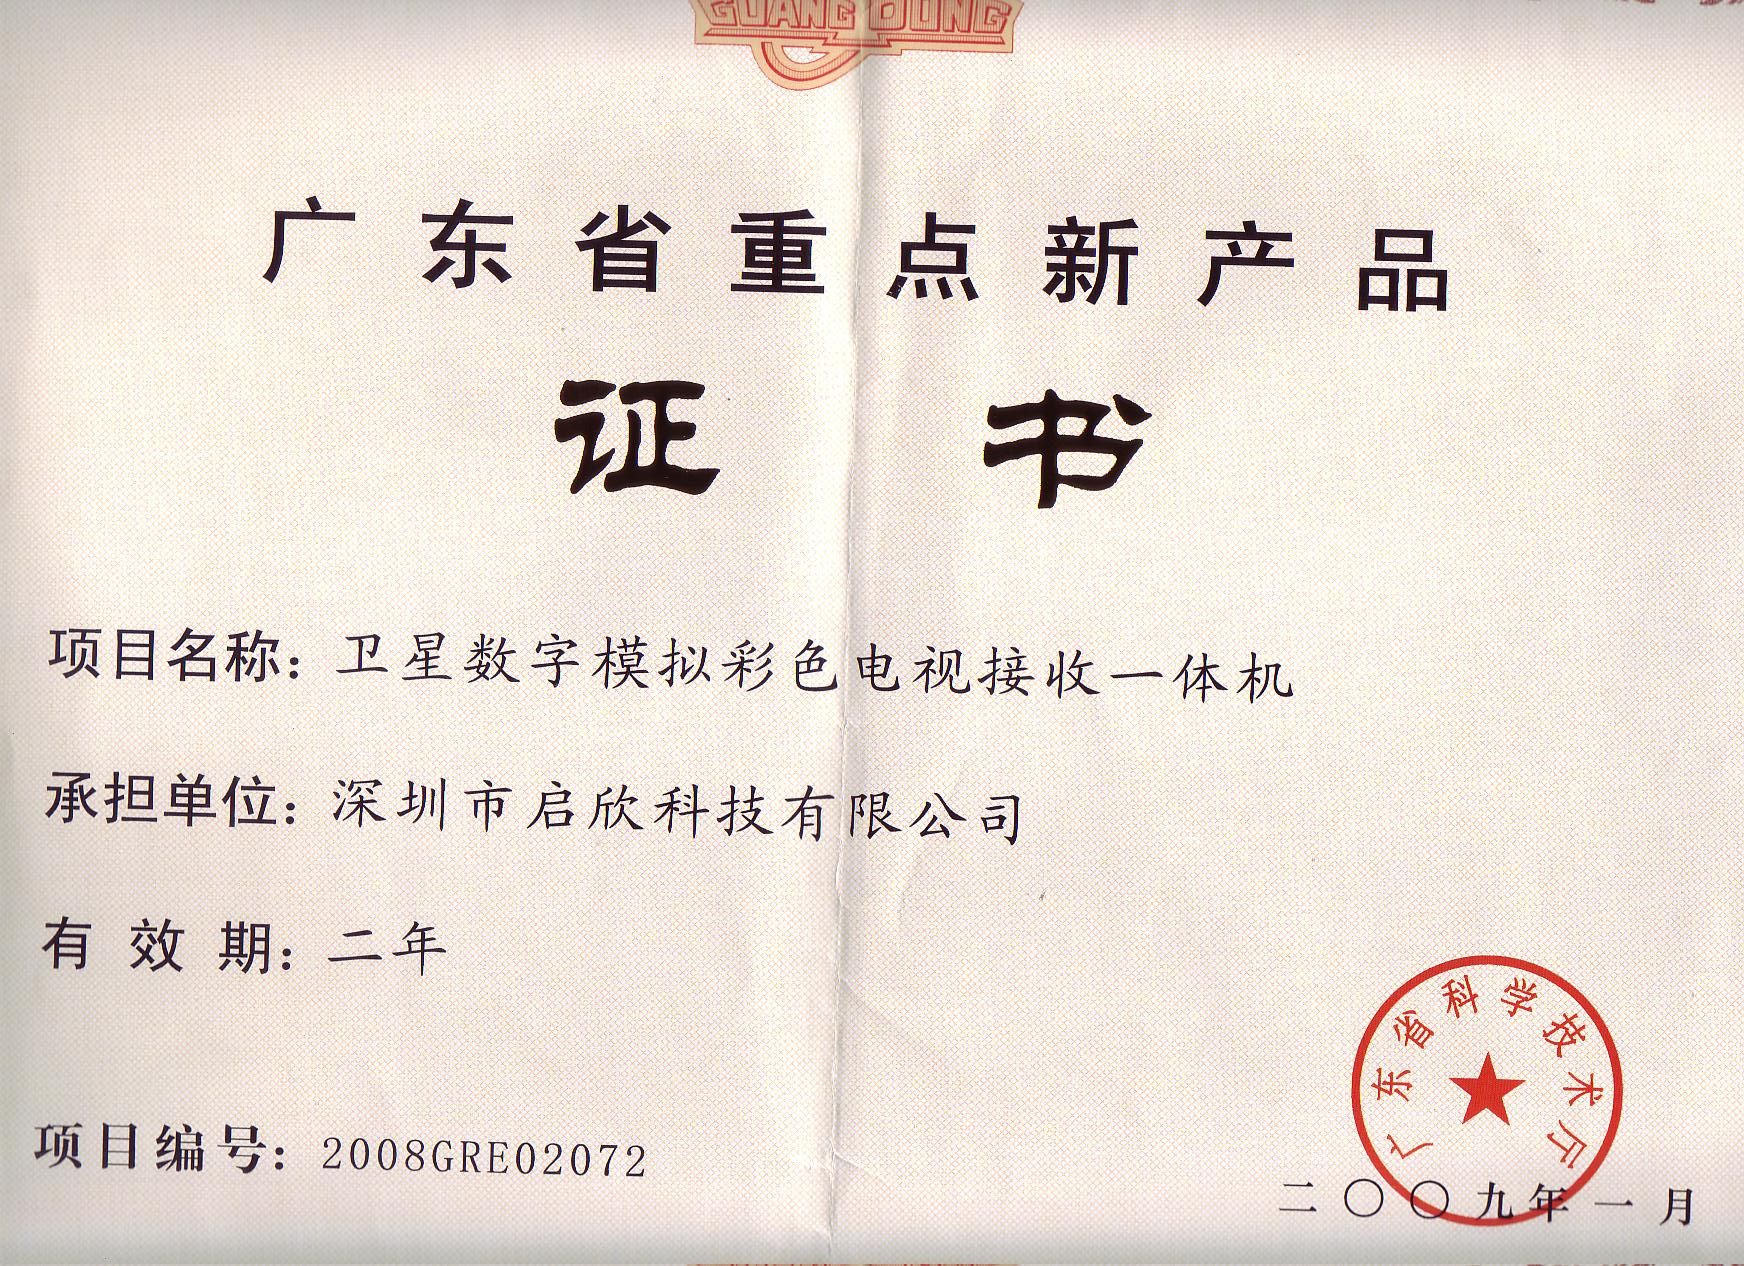 GUANG DONG
广东省重点新产品
证书
项目名称：卫星数字模拟彩色电视接收一体机
承担单位：深圳市启欣科技有限公司
有效期：二年
项目编号：2008GRE02072
广东省科学技术厅
二〇〇九年一月